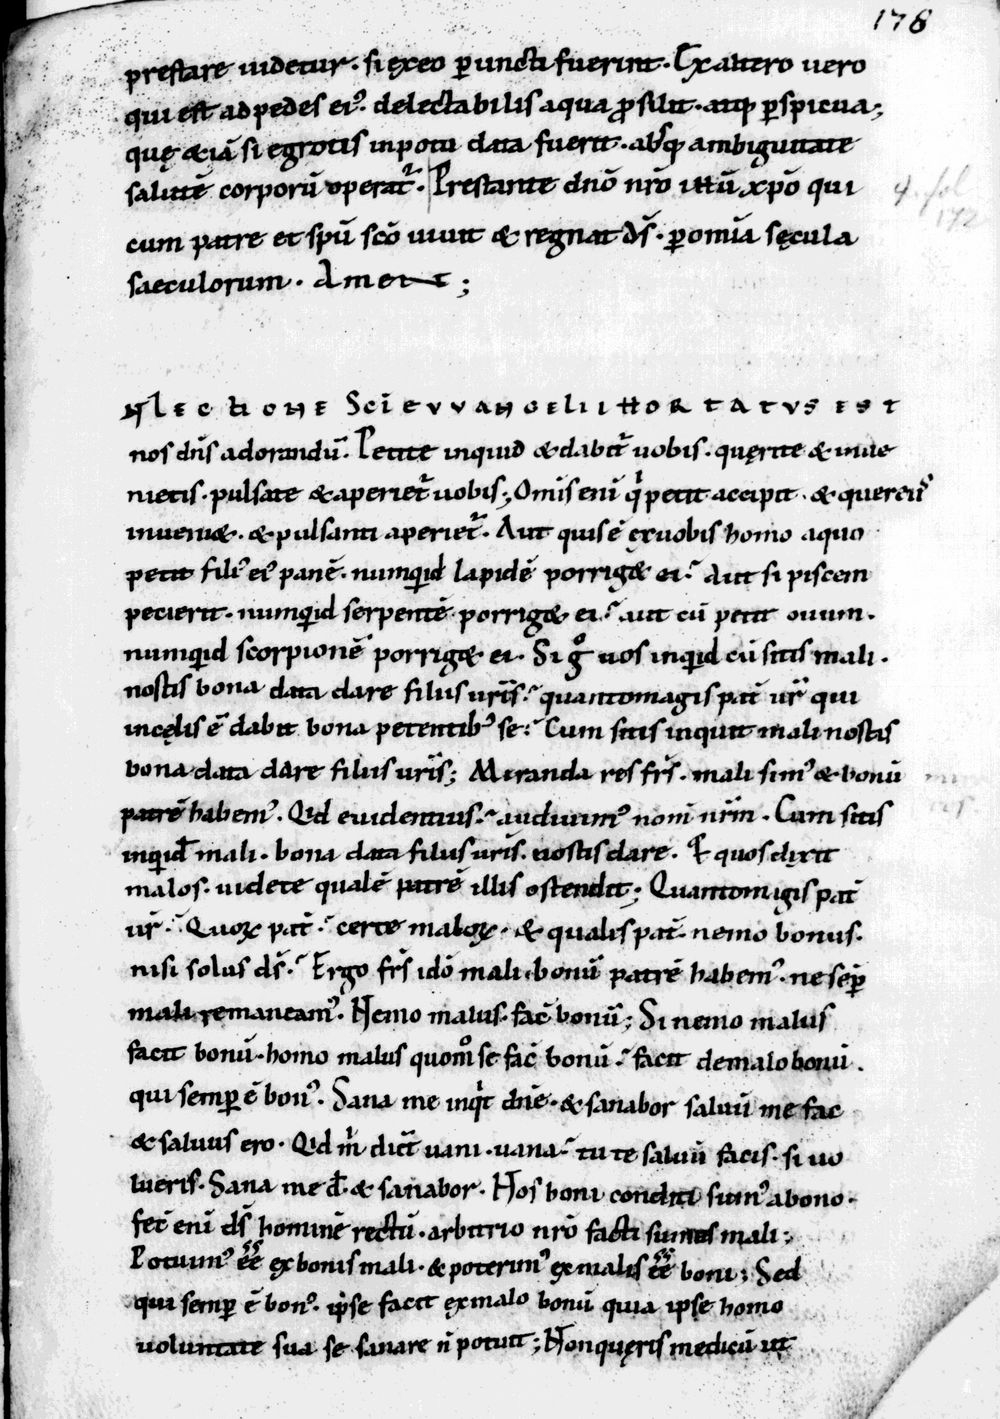 178
prestare uidetur · si ęxeo ꝑuncti fuerint · Ex altero uero
qui est ad pedes ei᾽ · delectabilis aqua ꝓsilit · atqꝫ ꝑspicua;
quę &iā si egrotis inpotu data fuerit · absqꝫ ambiguitate
salutē corporū operat᷑ · Prestante dn̄o nr̄o ihū xp̄o qui
4. fol 172
cum patre et sp̄ū sc̄o uiuit & regnat d̄s · ꝑ om̄ia sęcula
saeculorum · Amen ;
IN lectione Sc̄i euuangelii hortatus est
nos dn̄s adorandū · Petite inquid & dabit᷑ uobis · quęrite & inue
nietis · pulsate & aperiet᷑ uobis; Om̄is enī q̇ petit accipit · & querens
inueni& · & pulsanti aperiet᷑ · Aut quis ē ex uobis homo a quo
petit fili᾽ ei᾽ panē · numquid lapidē porrig& ei? Aut si piscem
pecierit · numquid serpentē porrig& ei? aut cū petit ouum ·
numquid scorpionē porrig& ei · Si g̊ uos inquid cū sitis mali ·
nostis bona data dare filiis ur̄is? quantomagis pat̄ ur̄ qui
incęlis ē dabit bona petentib᾽ se? Cum sitis inquit mali nostis
bona data dare filiis ur̄is; Miranda res fr̄s · mali sim᾽ & bonū
patrē habem᾽ · Qid euidentius? audiuim᾽ nom̄ nr̄m · Cum sitis
inquid mali · bona data filiis ur̄is nostis dare · Et quos dixit
malos · uidete qualē patrē illis ostendit; Quantomagis pat̄
ur̄? Quoꝝ pat̄? certe maloꝝ · & qualis pat̄ · nemo bonus ·
nisi solus d̄s? Ergo fr̄s idō mali · bonū patrē habem᾽ · ne semꝑ
mali remaneam᾽ · Nemo malus · fac̄ bonū; Si nemo malus
facit bonū · homo malus quom̊ se fac̄ bonū? facit de malo bonū ·
qui semꝑ ē bon᾽ · Sana me inqt dn̄e · & sanabor saluū me fac
& saluus ero · Qid m̄ dict̄ uani · uana? tu te saluū facis · si uo
lueris · Sana me d̄ · & sanabor · Nos boni conditi sum᾽ a bono ·
fec̄ enī d̄s hominē rectū · arbitrio nr̄o facti sumus mali;
Potuim᾽ ee᷑ ex bonis mali · & poterim᾽ ex malis ee᷑ boni; Sed
qui semꝑ ē bon᾽ · ip̄se facit ęx malo bonū quia ipse homo
uoluntate sua se sanare n̄ potuit; Non quęris medicū ut